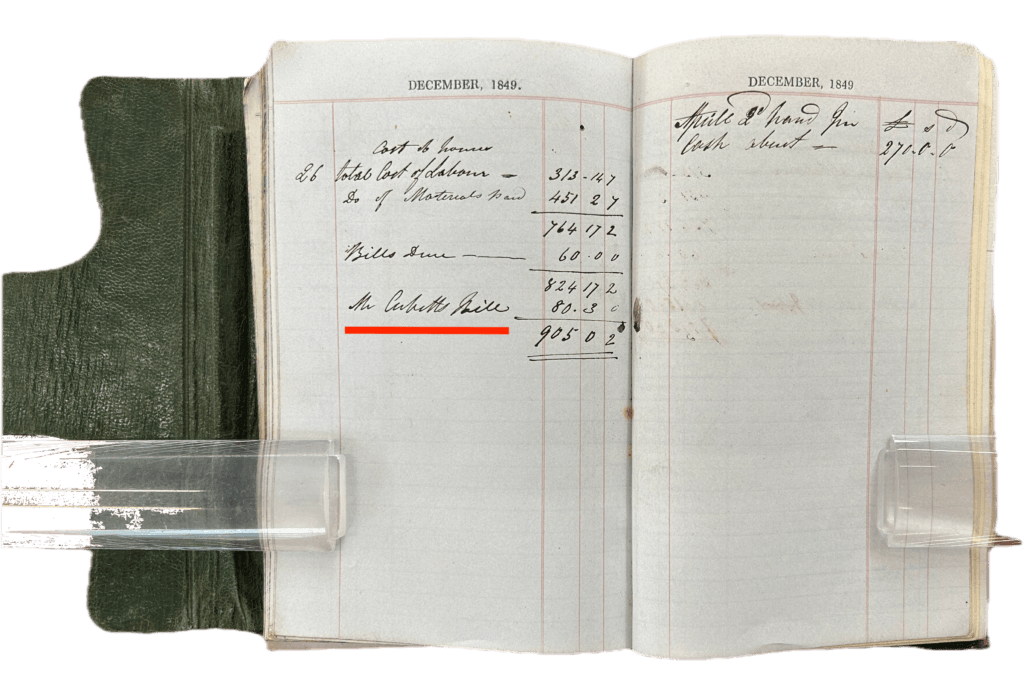 DECEMBER, 1849.
Cost to
26 total Cost of Labour - 313 - 14 7
Do of Materials 451 2 7
764 17 2
Bills Due - 60 - 0 0
824 17 2
Mr Corbetts Bill 80 - 3
905 0 2
DECEMBER, 1849
April 2d hand in £ s d
Cash about - 270 - 0 - 0